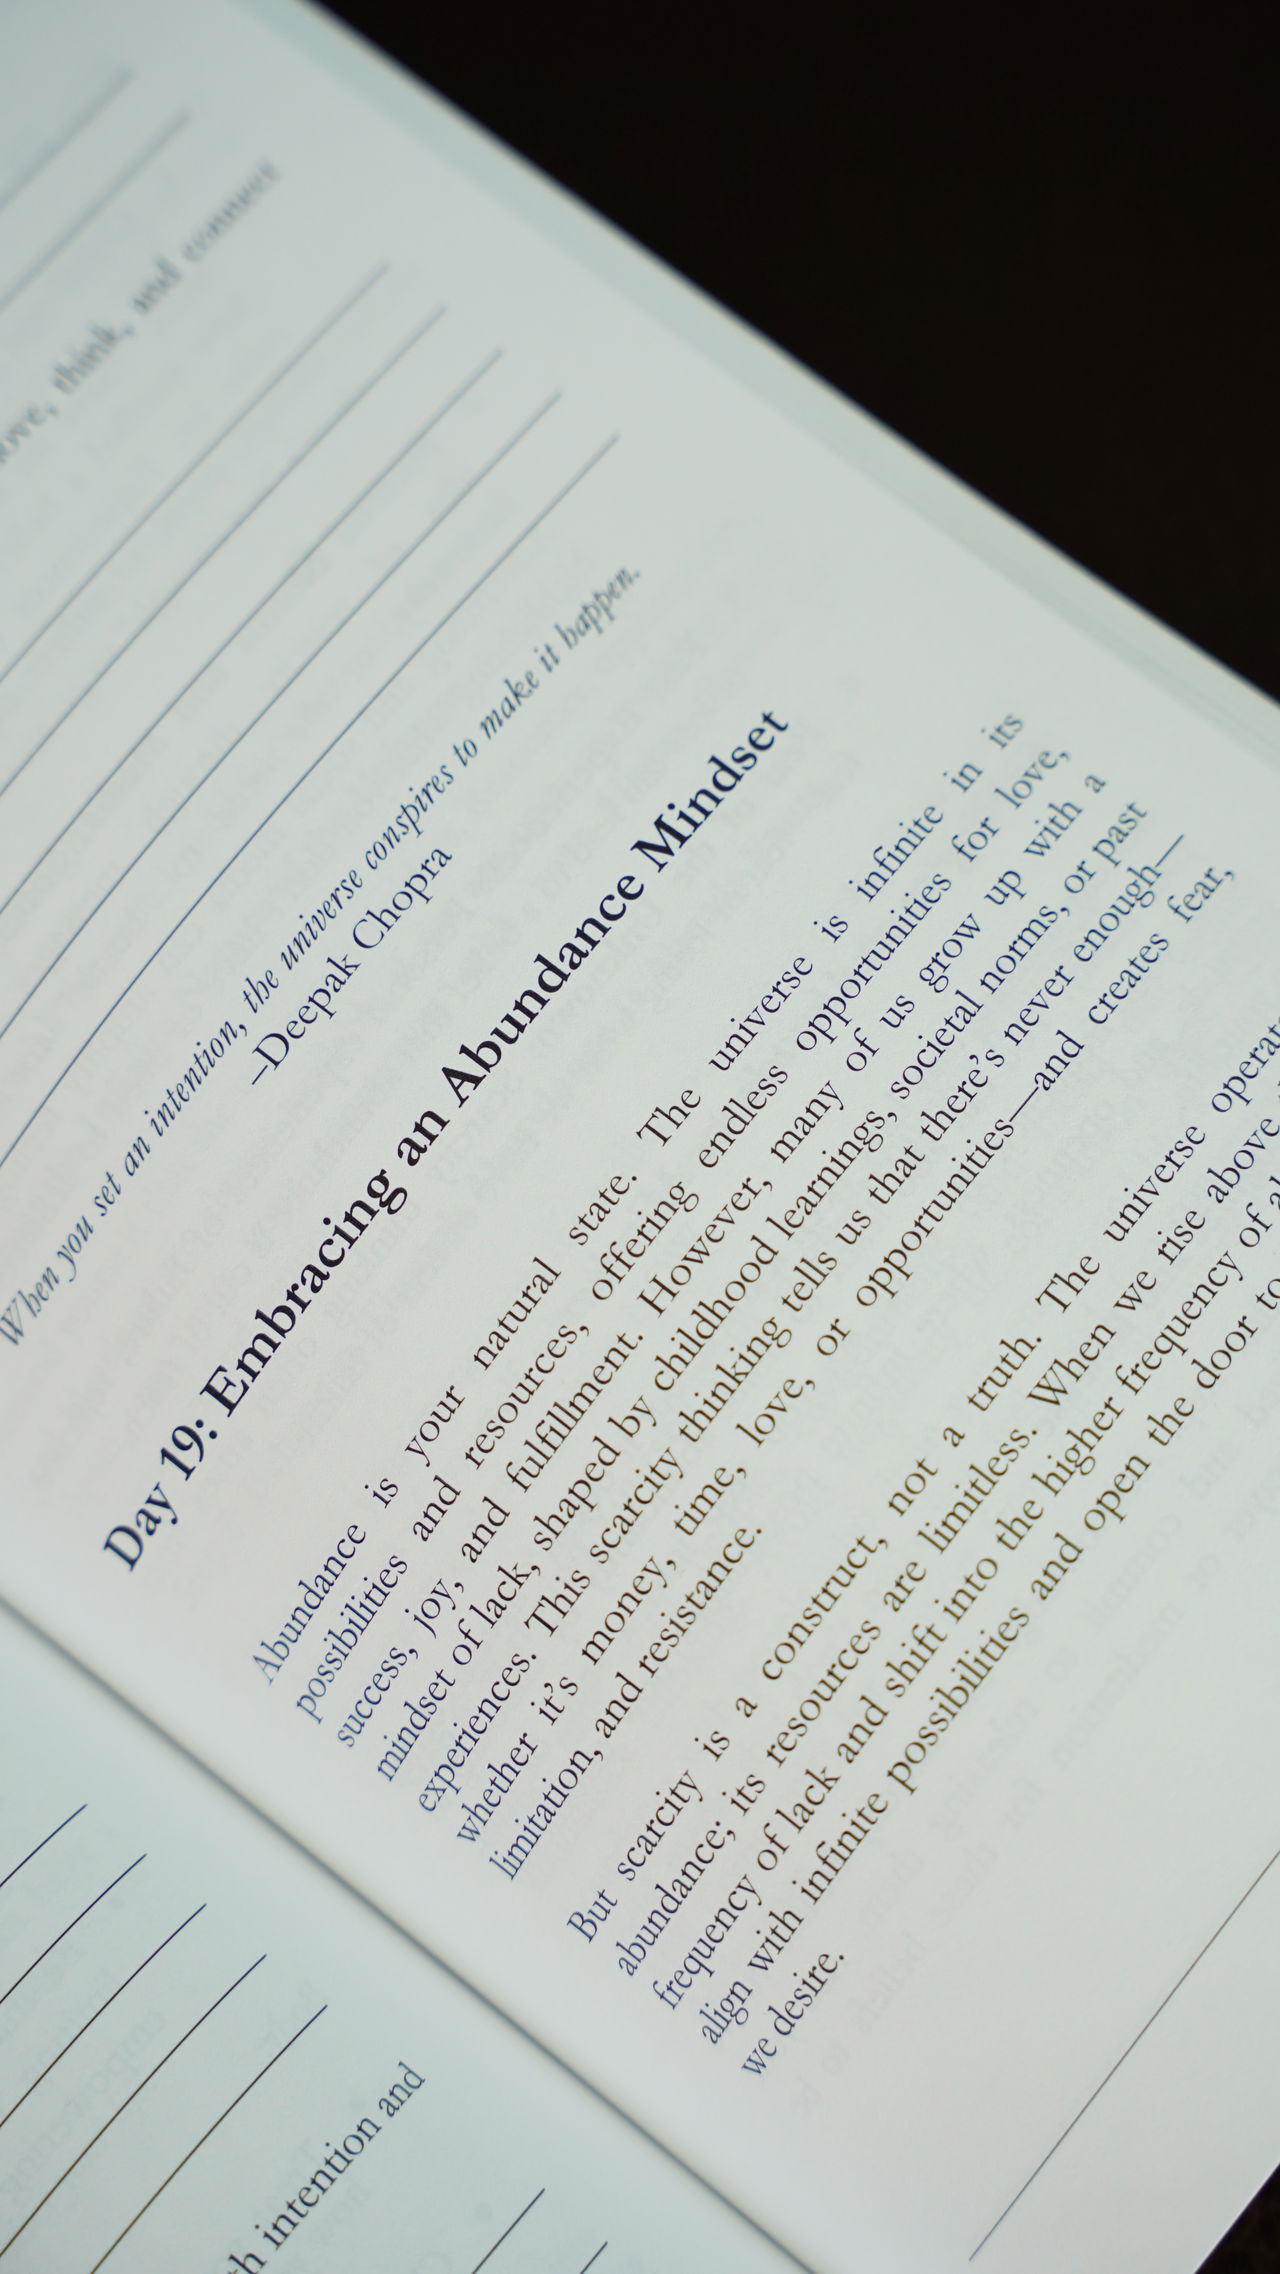 think, and connect
When you set an intention, the universe conspires to make it happen.
–Deepak Chopra
Day 19: Embracing an Abundance Mindset
Abundance is your natural state. The universe is infinite in its
possibilities and resources, offering endless opportunities for love,
success, joy, and fulfillment. However, many of us grow up with a
mindset of lack, shaped by childhood learnings, societal norms, or past
experiences. This scarcity thinking tells us that there's never enough—
whether it's money, time, love, or opportunities—and creates fear,
limitation, and resistance.
But scarcity is a construct, not a truth. The universe
abundance; its resources are limitless. When we rise above
frequency of lack and shift into the higher frequency of
align with infinite possibilities and open the door to
we desire.
intention and